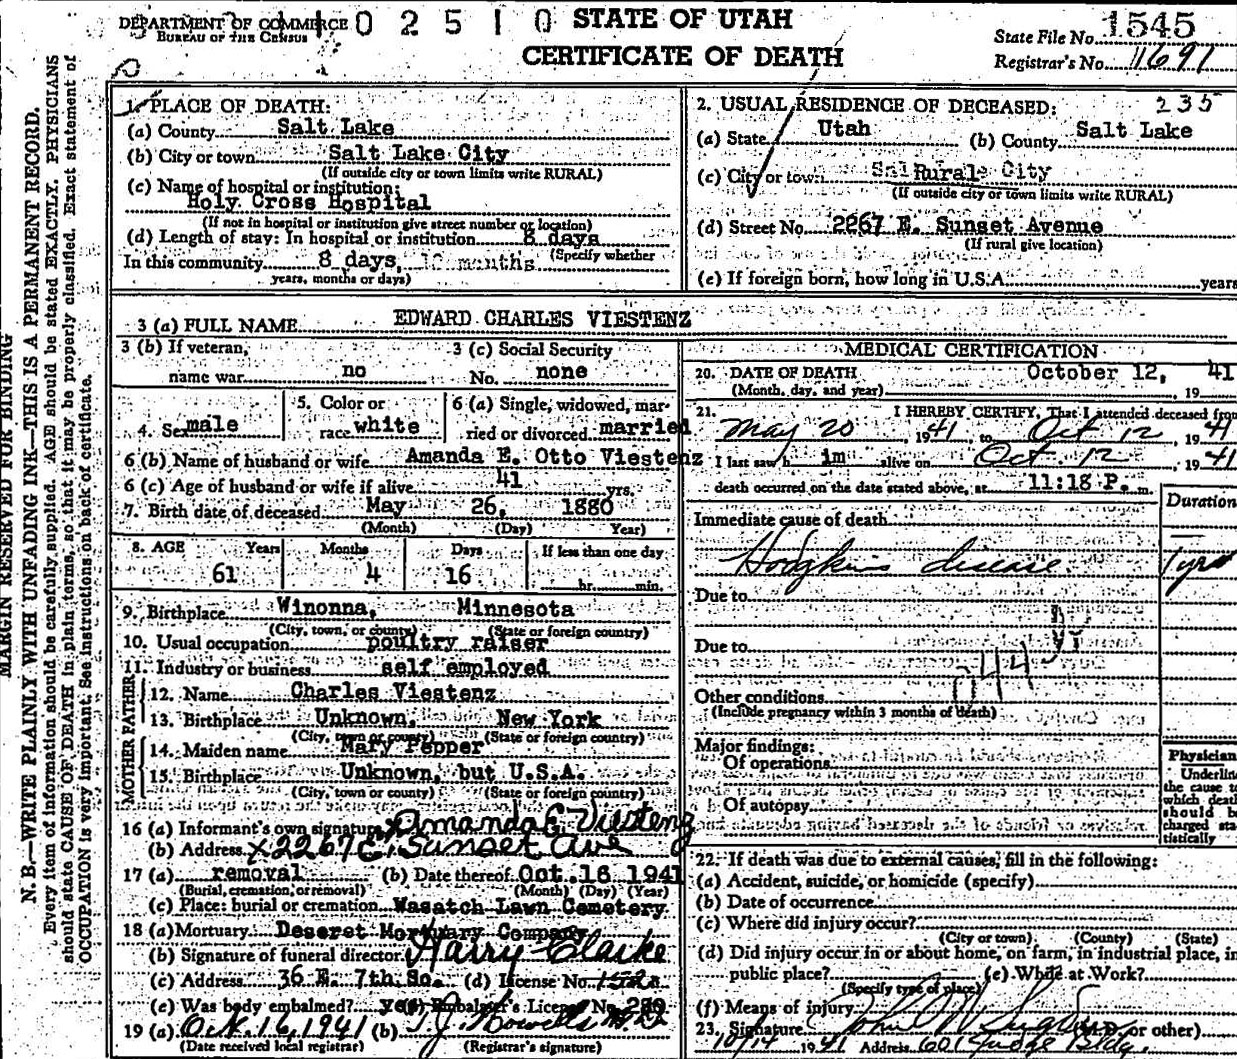 DEPARTMENT OF COMMERCE
BUREAU OF THE CENSUS
0 2 5 1 0
STATE OF UTAH
CERTIFICATE OF DEATH
State File No. 1545
Registrar's No. 1691
MARGIN RESERVED FOR BINDING
N. B.—WRITE PLAINLY WITH UNFADING INK—THIS IS A PERMANENT RECORD.
Every item of information should be carefully supplied. AGE should be stated EXACTLY. PHYSICIANS
should state CAUSE OF DEATH in plain terms, so that it may be properly classified. Exact statement of
OCCUPATION is very important. See instructions on back of certificate.
1. PLACE OF DEATH:
(a) County Salt Lake
(b) City or town Salt Lake City
(If outside city or town limits write RURAL)
(c) Name of hospital or institution:
Holy Cross Hospital
(If not in hospital or institution give street number or location)
(d) Length of stay: In hospital or institution 8 days
(Specify whether
In this community 8 days, months
years, months or days)
2. USUAL RESIDENCE OF DECEASED: 235
(a) State Utah (b) County Salt Lake
(c) City or town Rural City
(If outside city or town limits write RURAL)
(d) Street No. 2267 E. Sunset Avenue
(If rural give location)
(e) If foreign born, how long in U.S.A. years
3 (a) FULL NAME EDWARD CHARLES VIESTENZ
3 (b) If veteran, name war no
3 (c) Social Security No. none
4. Sex male
5. Color or race white
6 (a) Single, widowed, married or divorced married
6 (b) Name of husband or wife Amanda E. Otto Viestenz
6 (c) Age of husband or wife if alive 41 yrs.
7. Birth date of deceased May 26, 1880
(Month) (Day) Year)
8. AGE Years Months Days If less than one day
61 4 16 hr. min.
9. Birthplace Winonna, Minnesota
(City, town, or county) (State or foreign country)
10. Usual occupation poultry raiser
11. Industry or business self employed
FATHER
12. Name Charles Viestenz
13. Birthplace Unknown, New York
(City, town or county) (State or foreign country)
MOTHER
14. Maiden name Mary Pepper
15. Birthplace Unknown, but U.S.A.
(City, town or county) (State or foreign country)
16 (a) Informant's own signature X Amanda E Viestenz
(b) Address X 2267 E. Sunset Ave
17 (a) removal (b) Date thereof Oct. 16 1941
(Burial, cremation, or removal) (Month) (Day) (Year)
(c) Place: burial or cremation Wasatch Lawn Cemetery
18 (a) Mortuary Deseret Mortuary Company
(b) Signature of funeral director Harry Clarke
(c) Address 36 E. 7th So. (d) License No.
(e) Was body embalmed? yes (f) Embalmer's License No. 280
19 (a) Oct. 16, 1941 (b) T. J. Howells
(Date received local registrar) (Registrar's signature)
MEDICAL CERTIFICATION
20. DATE OF DEATH October 12, 19 41
(Month, day, and year)
21. I HEREBY CERTIFY, That I attended deceased from
May 20, 1941, to Oct 12, 1941
I last saw him alive on Oct. 12, 1941
death occurred on the date stated above, at 11:18 P. m.
Duration
Immediate cause of death
Hodgkins disease 1 yrs
Due to
Due to
044
Other conditions
(Include pregnancy within 3 months of death)
Major findings:
Of operations
Of autopsy
Physician
Underline
the cause to
which death
should be
charged sta-
tistically
22. If death was due to external causes, fill in the following:
(a) Accident, suicide, or homicide (specify)
(b) Date of occurrence
(c) Where did injury occur?
(City or town) (County) (State)
(d) Did injury occur in or about home, on farm, in industrial place, in
public place? (e) While at Work?
(Specify type of place)
(f) Means of injury
23. Signature John (M.D. or other)
10/14 1941 Address 601 Judge Bldg.